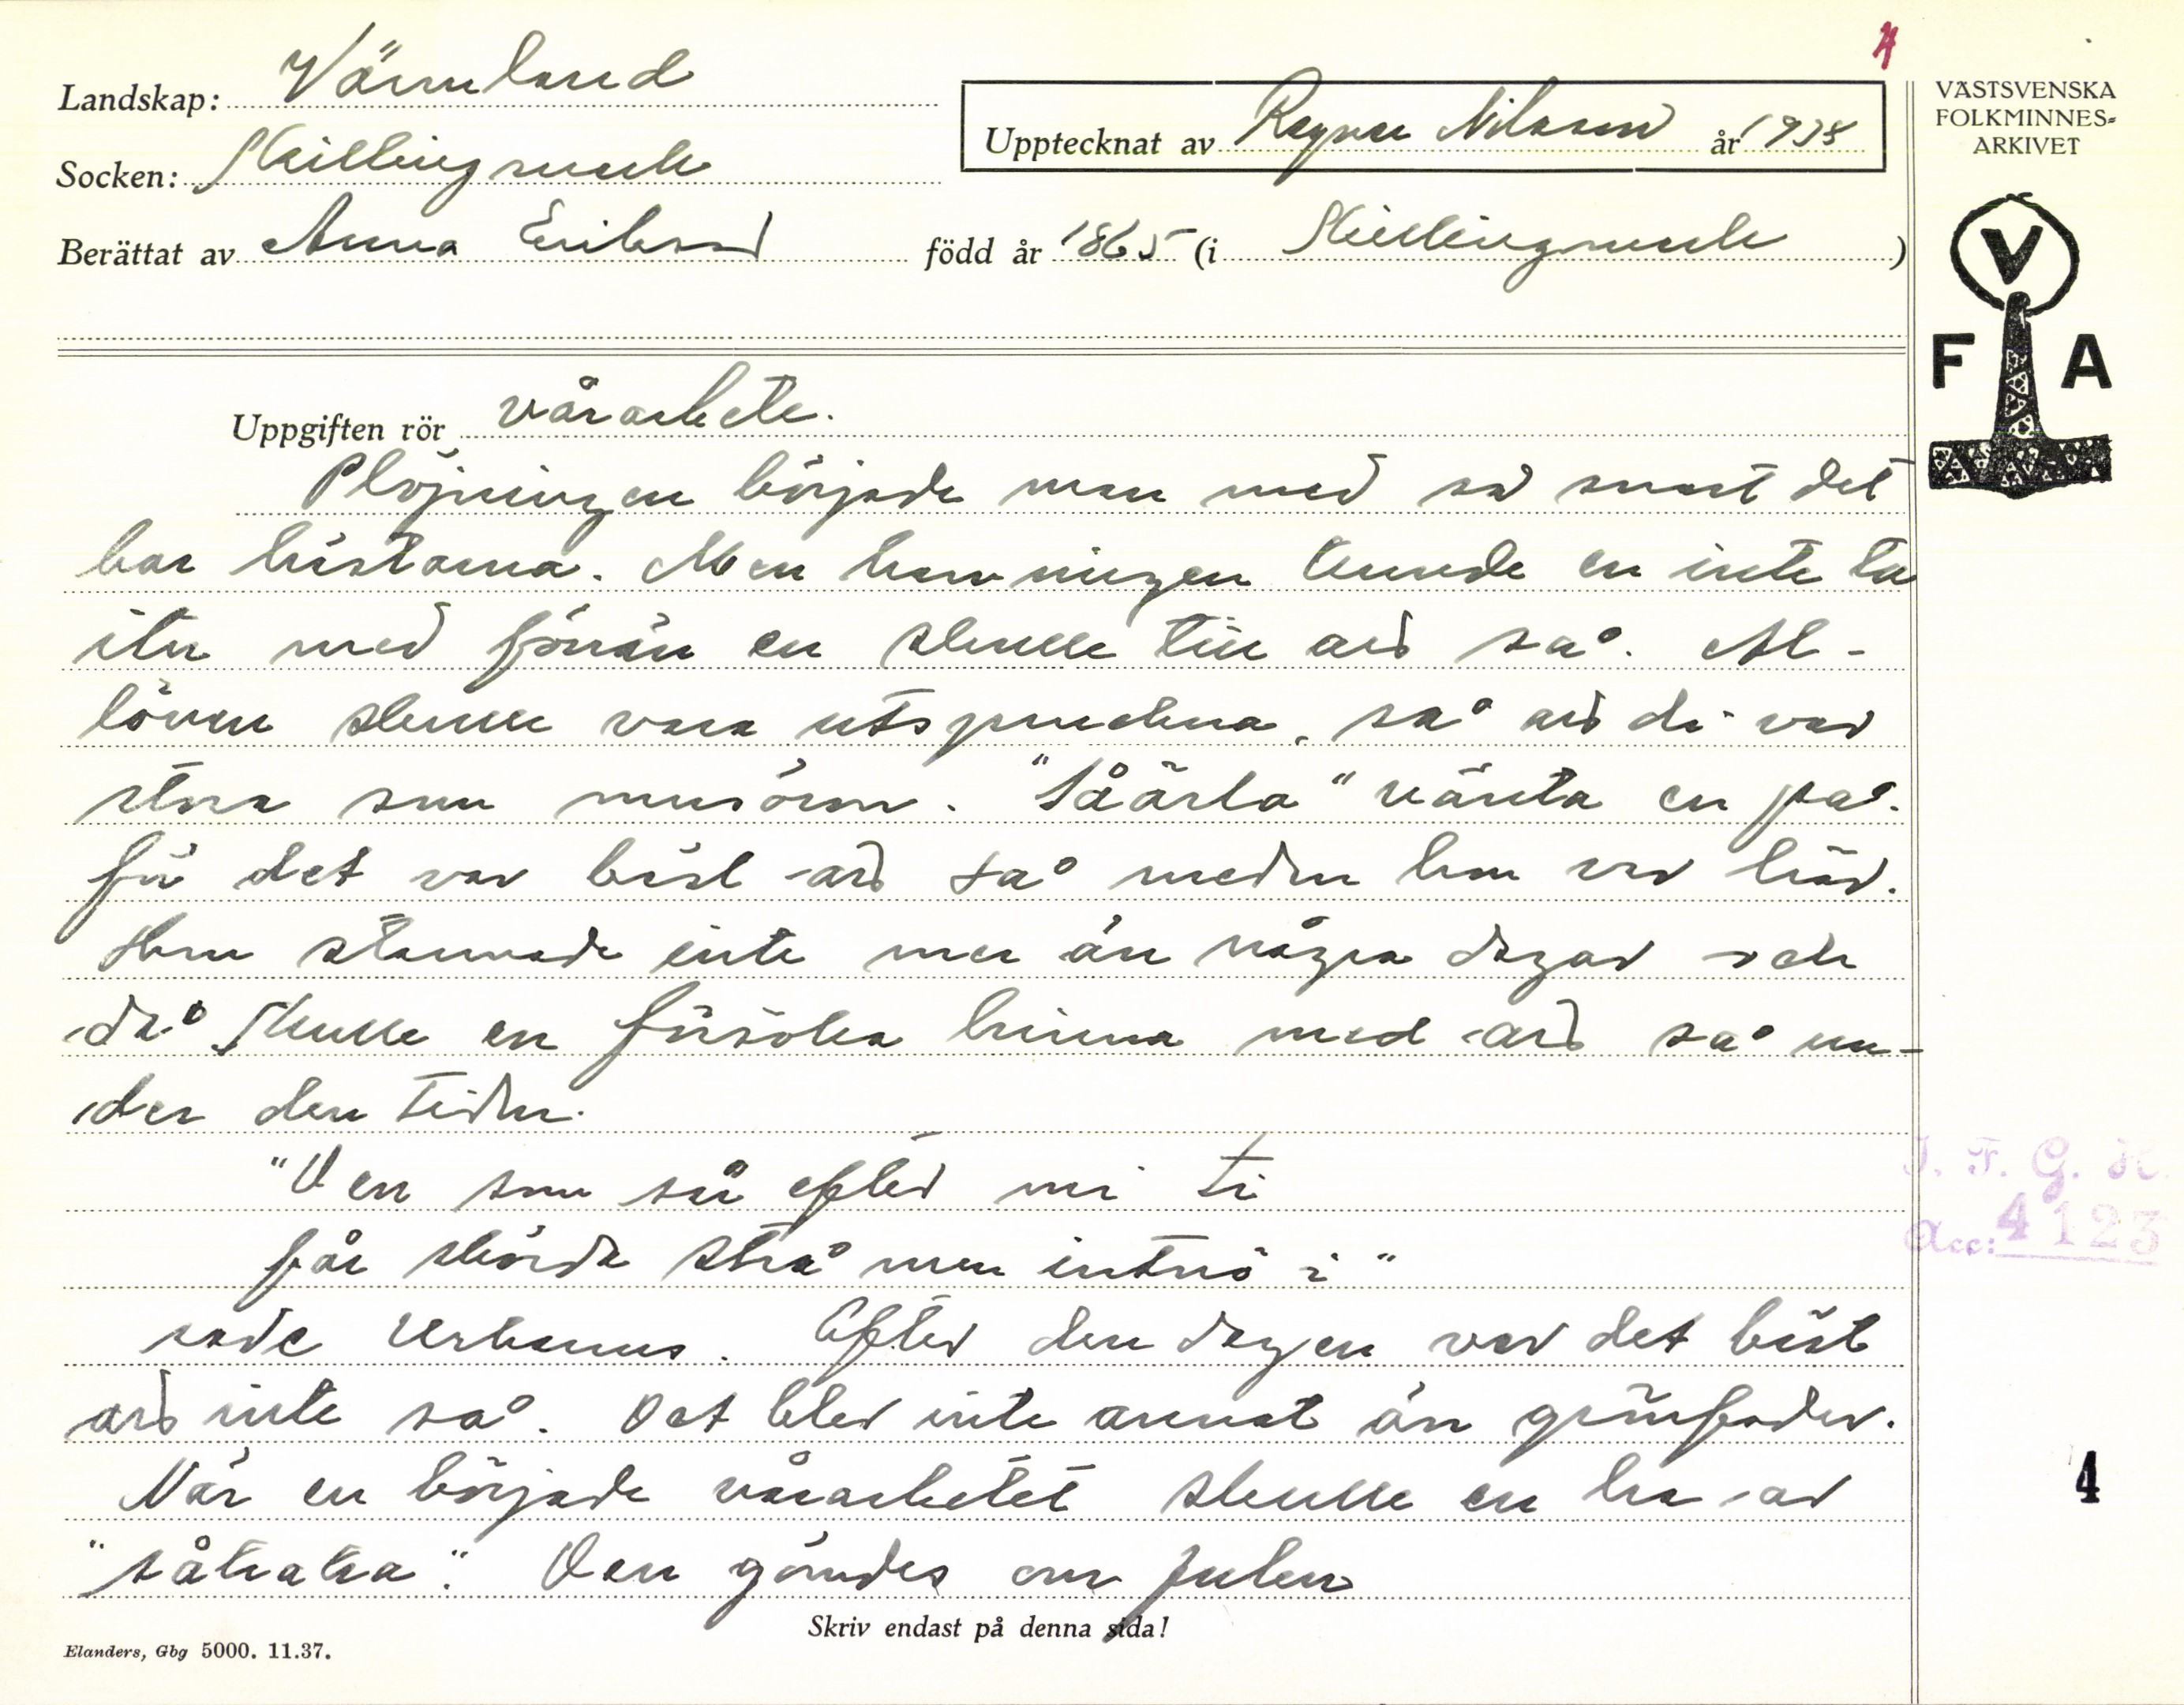 4
Landskap: Värmland
Socken: Skillingmark
Upptecknat av Ragnar Nilsson år 1938
Berättat av Anna Eriksson född år 1865 (i Skillingmark)
VÄSTSVENSKA
FOLKMINNES=
ARKIVET
V
F A
Uppgiften rör vårarbete.
Plöjningen började man med så snart det
bar hästarna. Men harvningen kunde en inte ta
itu med förrän en skulle till att så. Al-
löven skulle vara utspruckna, så att di var
stora som musöron. "Såärla" vänta en på.
för det var bäst att så meden hon var här.
Hon stannade inte mer än några dagar och
då skulle en försöka hinna med att så un-
der den tiden.
"Den som sår efter mi ti
får skörda strå men intnö i"
sade Urbanus. Efter den dagen var det bäst
att inte så. Det blev inte annat än grönfoder.
När en började vårarbetet skulle en ha av
"såkaka". Den gömdes om julen
I. F. G. H.
Acc: 4123
4
Skriv endast på denna sida!
Elanders, Gbg 5000. 11.37.